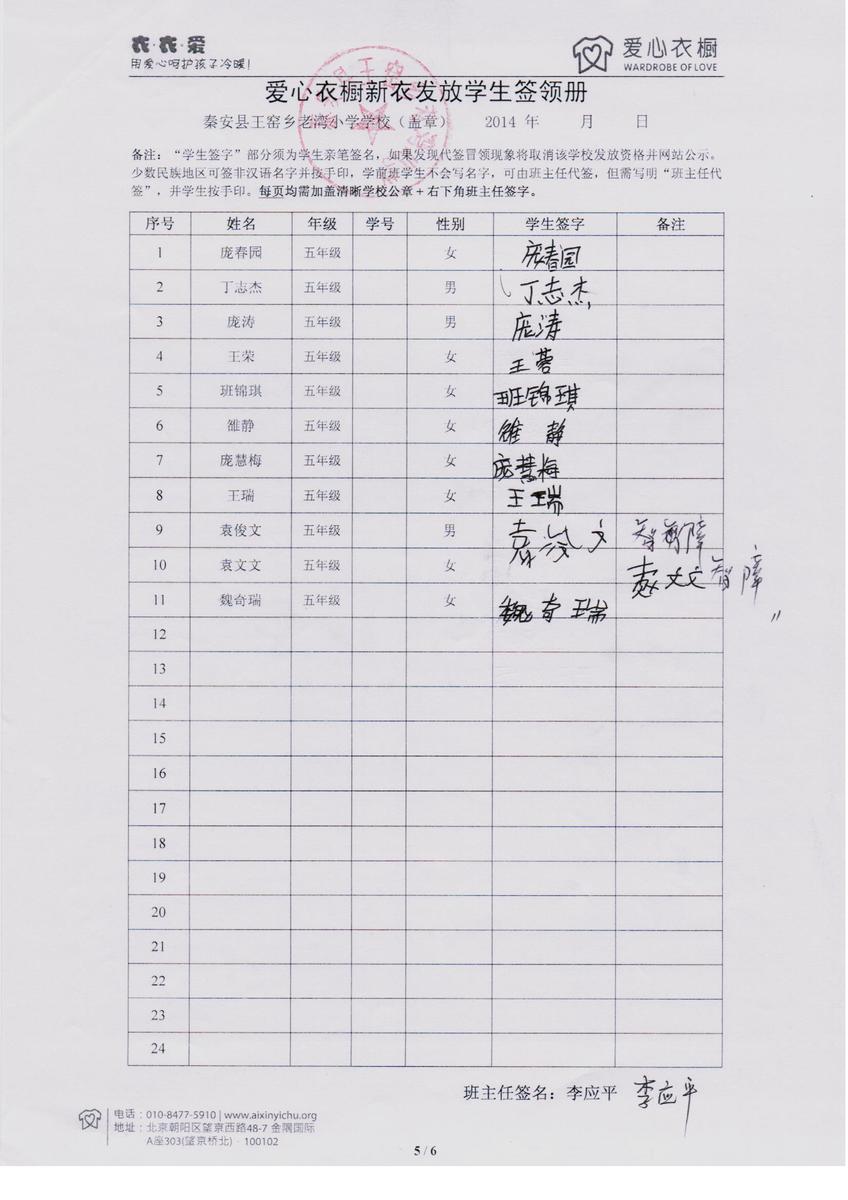 衣·衣·爱
用爱心呵护孩子冷暖!
爱心衣橱
WARDROBE OF LOVE
爱心衣橱新衣发放学生签领册
秦安县王窑乡老湾小学学校（盖章） 2014 年 月 日
备注：“学生签字”部分须为学生亲笔签名，如果发现代签冒领现象将取消该学校发放资格并网站公示。
少数民族地区可签非汉语名字并按手印，学前班学生不会写名字，可由班主任代签，但需写明“班主任代
签”，并学生按手印。每页均需加盖清晰学校公章＋右下角班主任签字。
序号 姓名 年级 学号 性别 学生签字 备注
1 庞春园 五年级 女 庞春园
2 丁志杰 五年级 男 丁志杰
3 庞涛 五年级 男 庞涛
4 王荣 五年级 女 王
5 班锦琪 五年级 女 班锦琪
6 雒静 五年级 女 雒静
7 庞慧梅 五年级 女 庞慧梅
8 王瑞 五年级 女 王瑞
9 袁俊文 五年级 男 袁俊文 智障
10 袁文文 五年级 女 袁文文 智障
11 魏奇瑞 五年级 女 魏奇瑞 〃
12
13
14
15
16
17
18
19
20
21
22
23
24
班主任签名：李应平 李应平
电话：010-8477-5910 | www.aixinyichu.org
地址：北京朝阳区望京西路48-7 金隅国际
A座303(望京桥北) · 100102
5 / 6